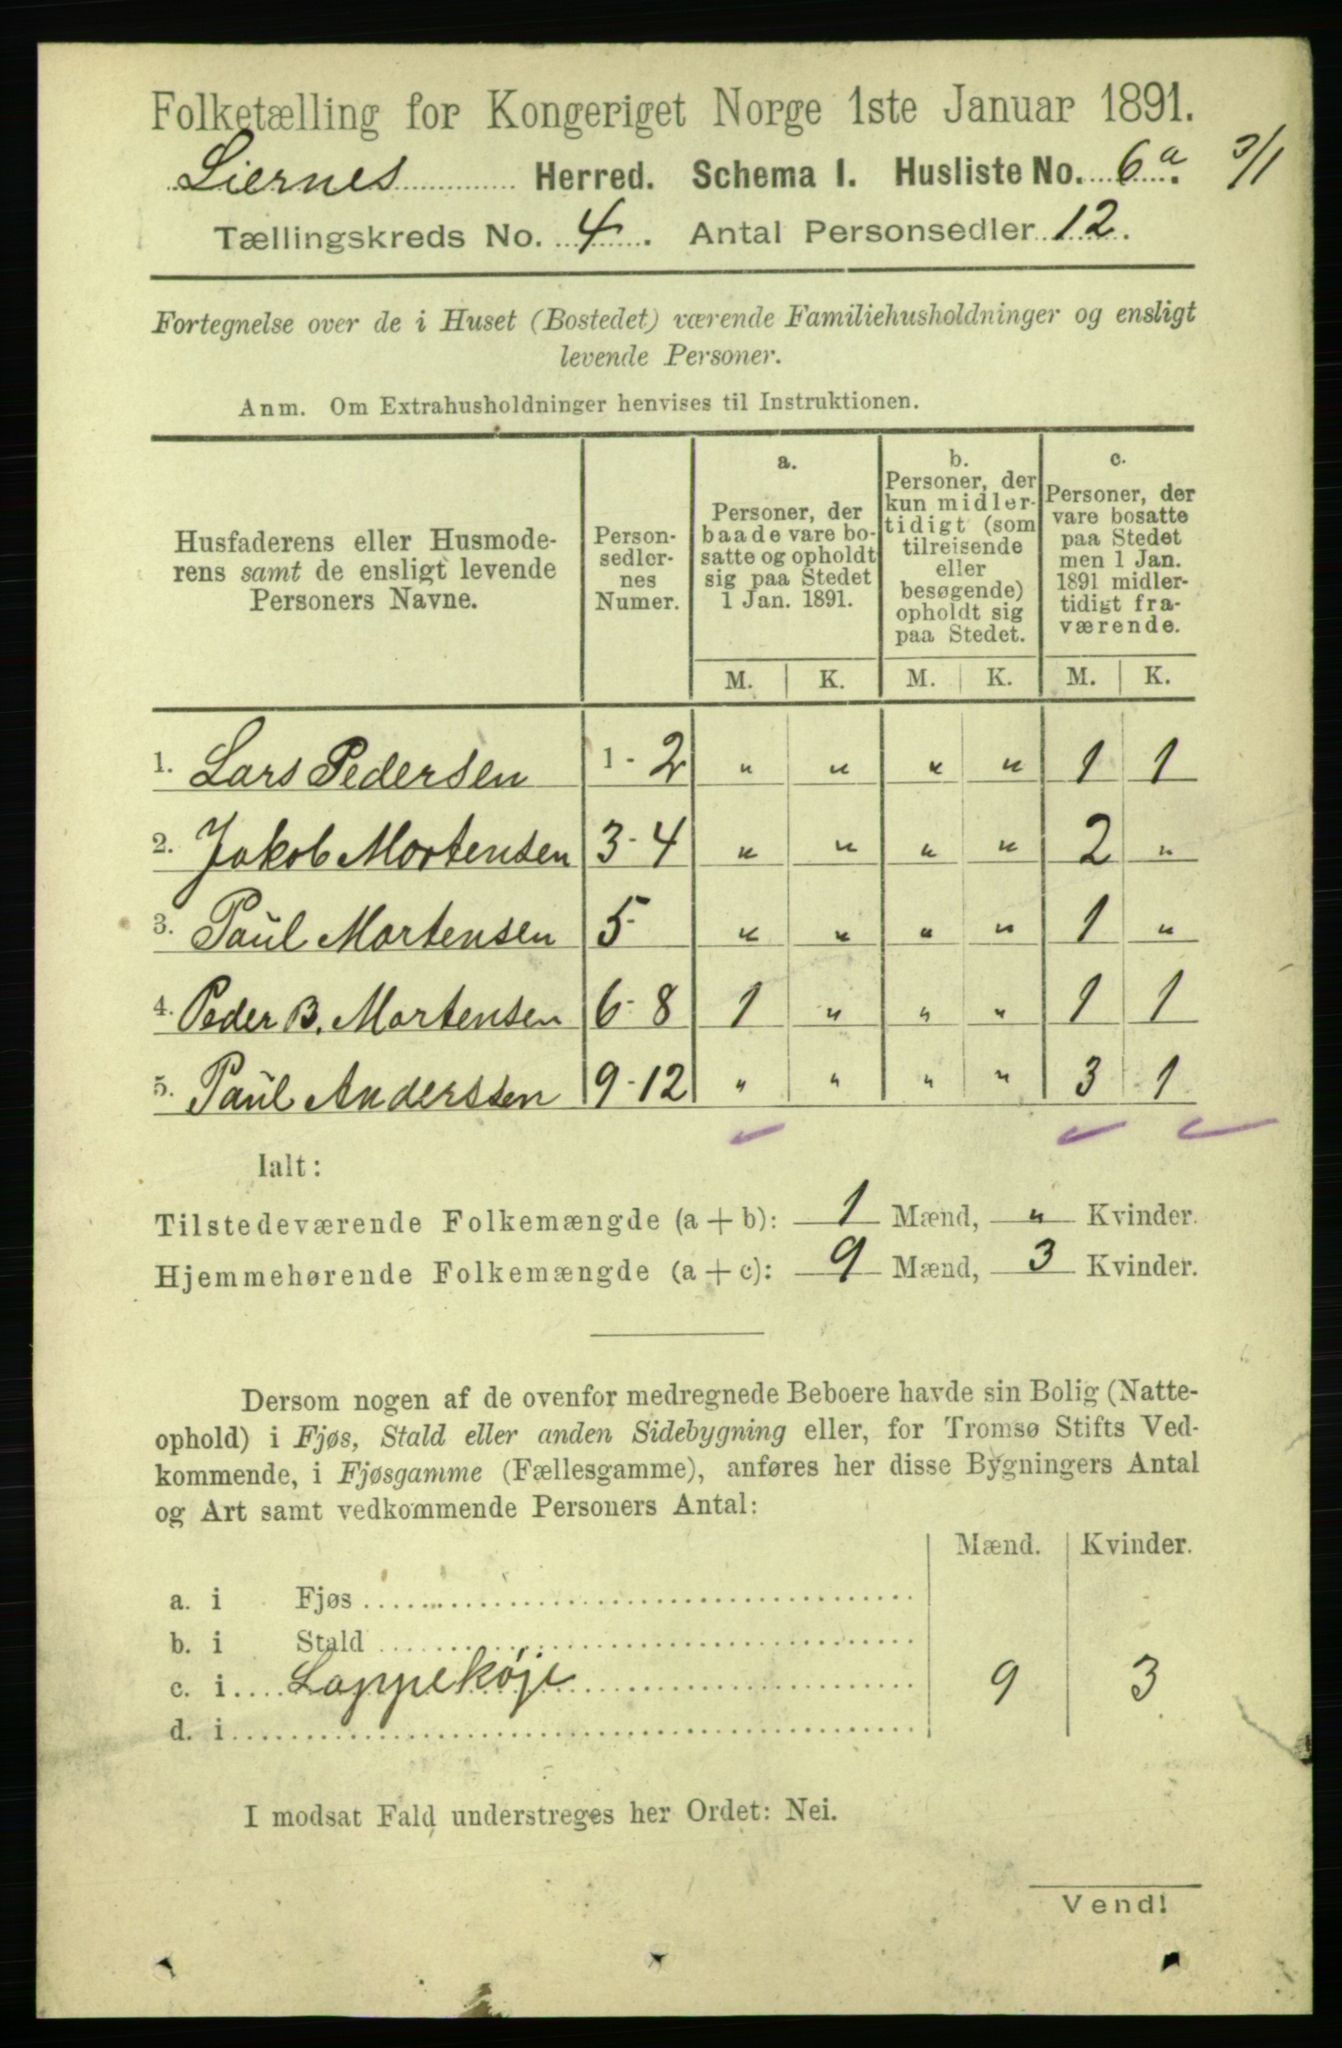 Folketælling for Kongeriget Norge 1ste Januar 1891.
Liernes Herred. Schema I. Husliste No. 6a. 3/1
Tællingskreds No. 4. Antal Personsedler 12.
Fortegnelse over de i Huset (Bostedet) værende Familiehusholdninger og ensligt
levende Personer.
Anm. Om Extrahusholdninger henvises til Instruktionen.
Husfaderens eller Husmode-
rens samt de ensligt levende
Personers Navne.
Person-
sedler-
nes
Numer.
a.
Personer, der
baade vare bo-
satte og opholdt
sig paa Stedet
1 Jan. 1891.
b.
Personer, der
kun midler-
tidigt (som
tilreisende
eller
besøgende)
opholdt sig
paa Stedet.
c.
Personer, der
vare bosatte
paa Stedet
men 1 Jan.
1891 midler-
tidigt fra-
værende.
M. K. M. K. M. K.
1. Lars Pedersen 1-2 " " " " 1 1
2. Jakob Mortensen 3-4 " " " " 2 "
3. Paul Mortensen 5- " " " " 1 "
4. Peder B. Mortensen 6-8 1 " " " 1 1
5. Paul Anderssen 9-12 " " " " 3 1
Ialt:
Tilstedeværende Folkemængde (a + b): 1 Mænd, " Kvinder.
Hjemmehørende Folkemængde (a + c): 9 Mænd, 3 Kvinder.
Dersom nogen af de ovenfor medregnede Beboere havde sin Bolig (Natte-
ophold) i Fjøs, Stald eller anden Sidebygning eller, for Tromsø Stifts Ved-
kommende, i Fjøsgamme (Fællesgamme), anføres her disse Bygningers Antal
og Art samt vedkommende Personers Antal:
Mænd. Kvinder.
a. i Fjøs
b. i Stald
c. i Lappekøje 9 3
d. i
I modsat Fald understreges her Ordet: Nei.
Vend!